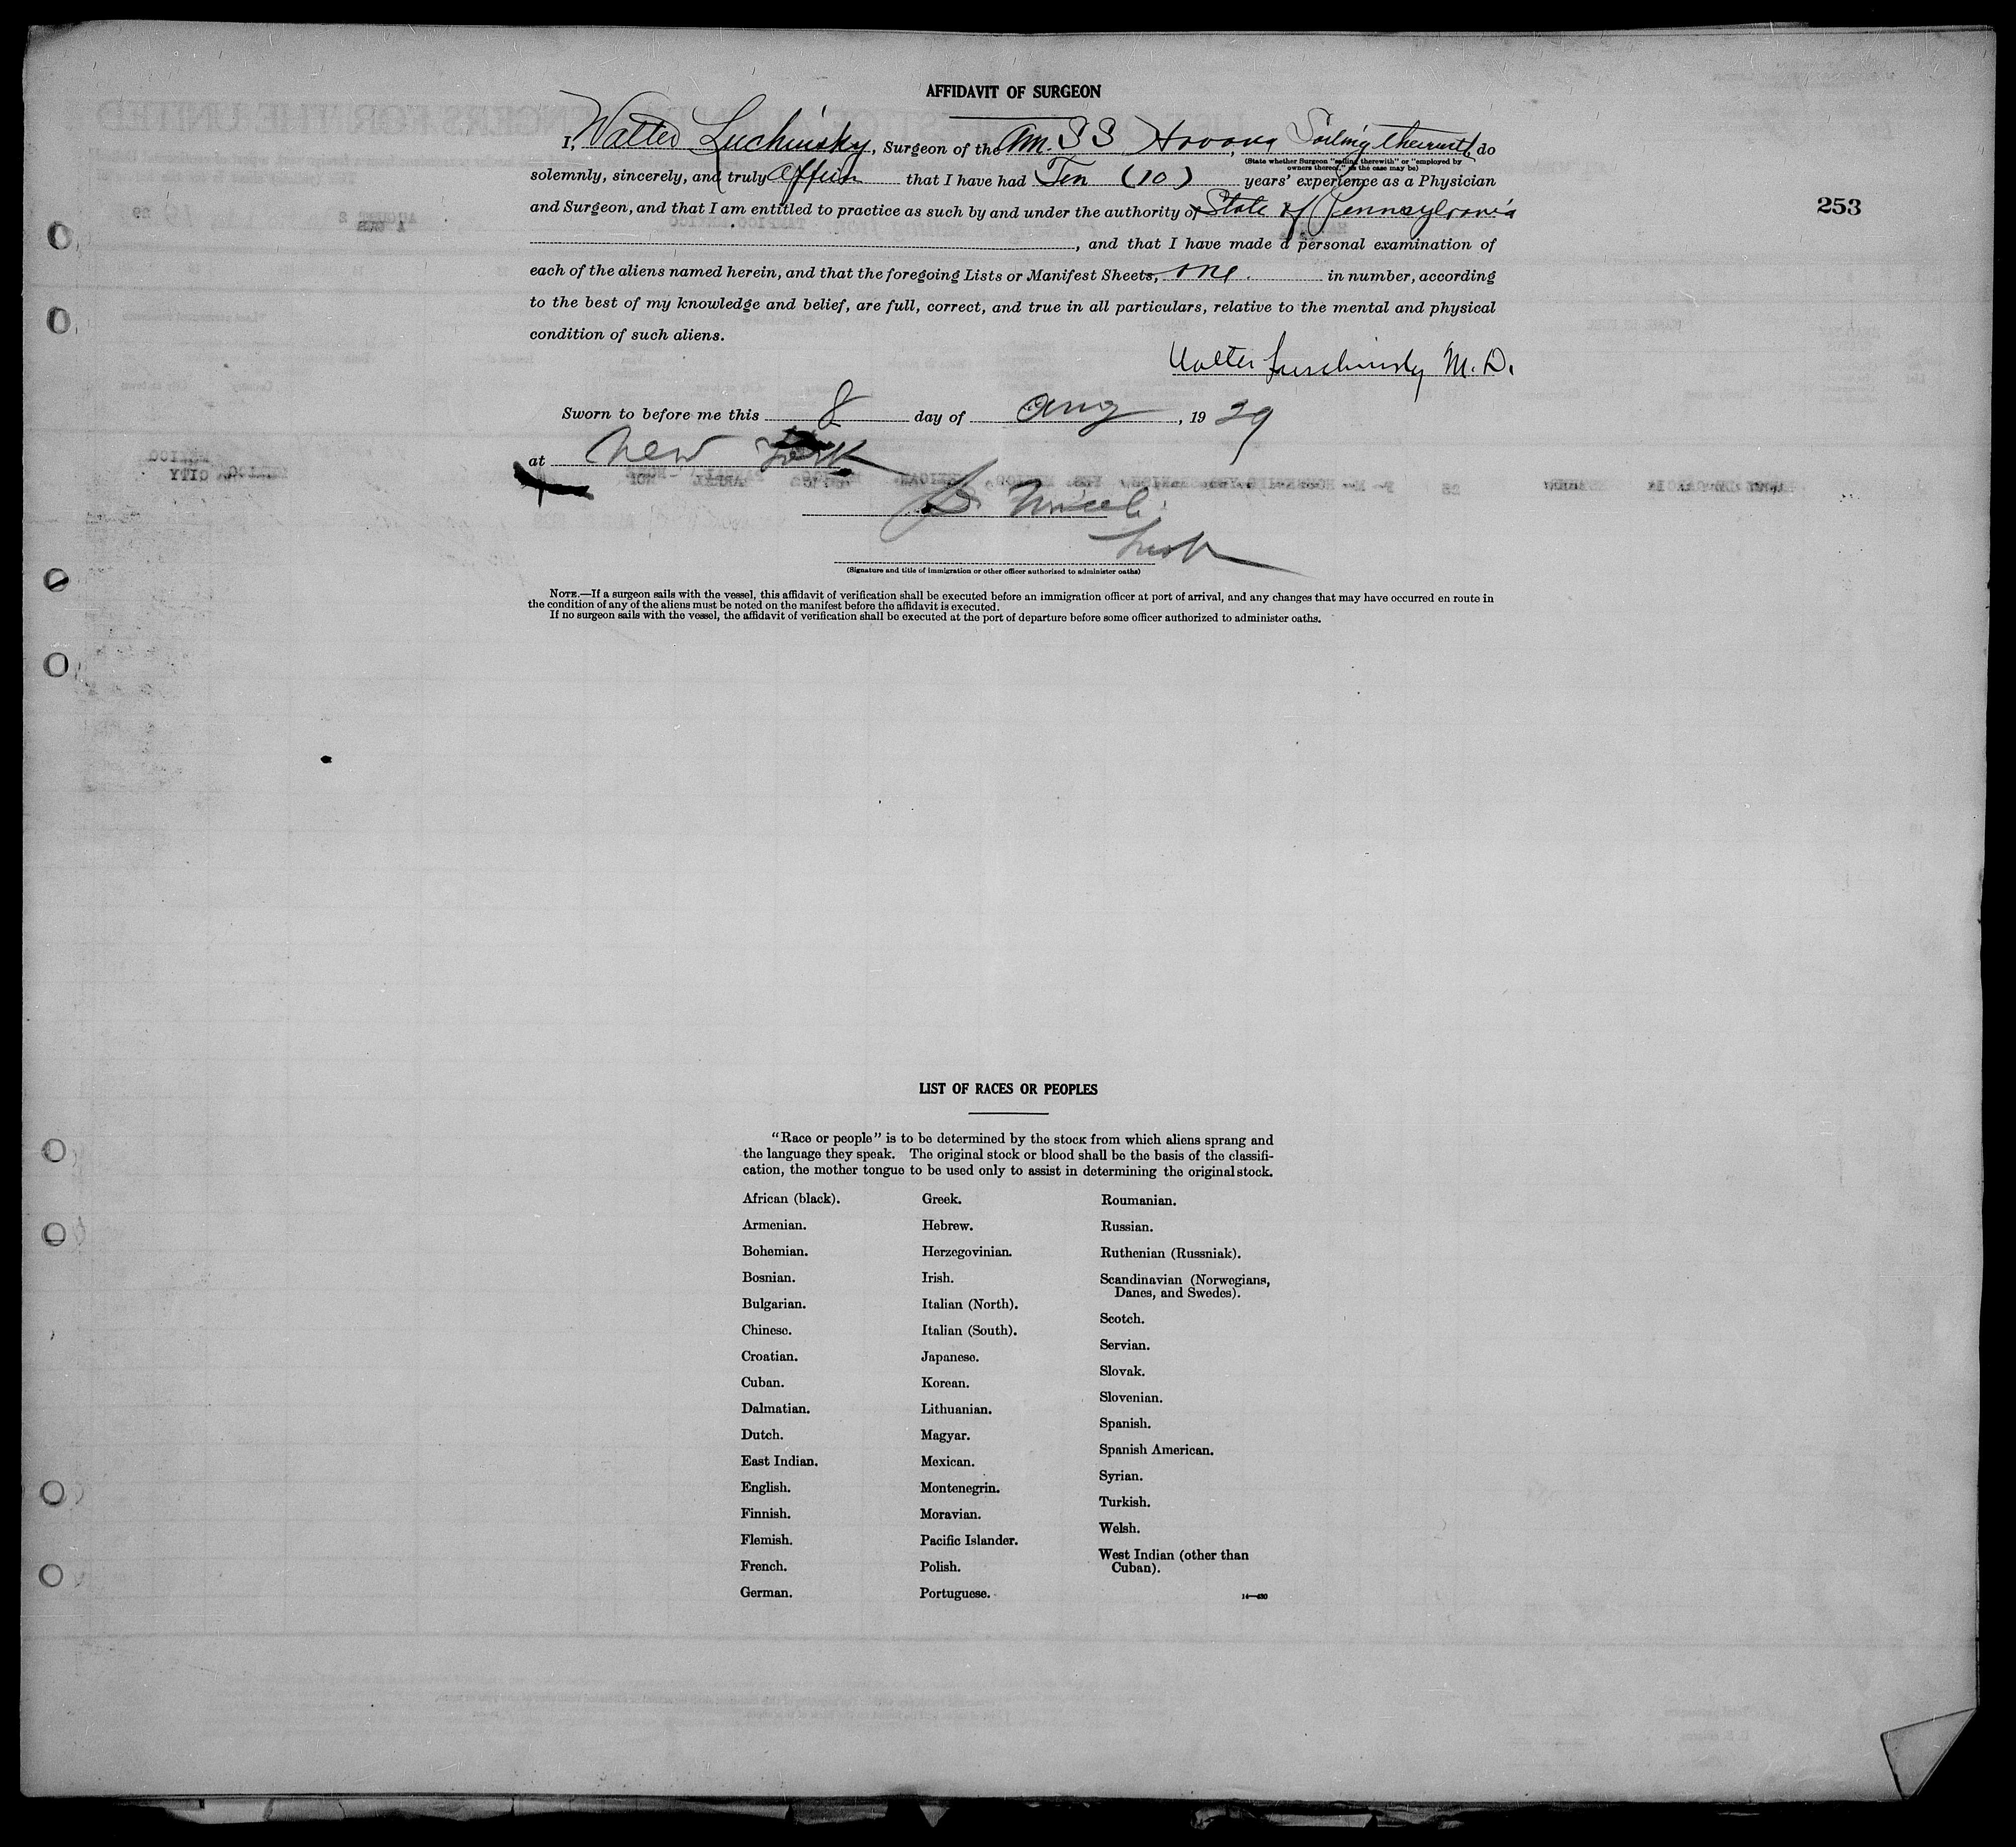 AFFIDAVIT OF SURGEON
I, Walter Luchinsky, Surgeon of the Am. S S Havana, Sailing therewith, do
(State whether Surgeon "sailing therewith" or "employed by
owners thereof," as the case may be)
solemnly, sincerely, and truly affirm that I have had Ten (10) years' experience as a Physician
and Surgeon, and that I am entitled to practice as such by and under the authority of State of Pennsylvania
253
, and that I have made a personal examination of
each of the aliens named herein, and that the foregoing Lists or Manifest Sheets, one. in number, according
to the best of my knowledge and belief, are full, correct, and true in all particulars, relative to the mental and physical
condition of such aliens.
Walter M. D.
Sworn to before me this 8 day of Aug, 19 29
at New York
(Signature and title of immigration or other officer authorized to administer oaths)
NOTE.—If a surgeon sails with the vessel, this affidavit of verification shall be executed before an immigration officer at port of arrival, and any changes that may have occurred en route in
the condition of any of the aliens must be noted on the manifest before the affidavit is executed.
If no surgeon sails with the vessel, the affidavit of verification shall be executed at the port of departure before some officer authorized to administer oaths.
LIST OF RACES OR PEOPLES
"Race or people" is to be determined by the stock from which aliens sprang and
the language they speak. The original stock or blood shall be the basis of the classifi-
cation, the mother tongue to be used only to assist in determining the original stock.
African (black).
Armenian.
Bohemian.
Bosnian.
Bulgarian.
Chinese.
Croatian.
Cuban.
Dalmatian.
Dutch.
East Indian.
English.
Finnish.
Flemish.
French.
German.
Greek.
Hebrew.
Herzegovinian.
Irish.
Italian (North).
Italian (South).
Japanese.
Korean.
Lithuanian.
Magyar.
Mexican.
Montenegrin.
Moravian.
Pacific Islander.
Polish.
Portuguese.
Roumanian.
Russian.
Ruthenian (Russniak).
Scandinavian (Norwegians,
Danes, and Swedes).
Scotch.
Servian.
Slovak.
Slovenian.
Spanish.
Spanish American.
Syrian.
Turkish.
Welsh.
West Indian (other than
Cuban).
14—430